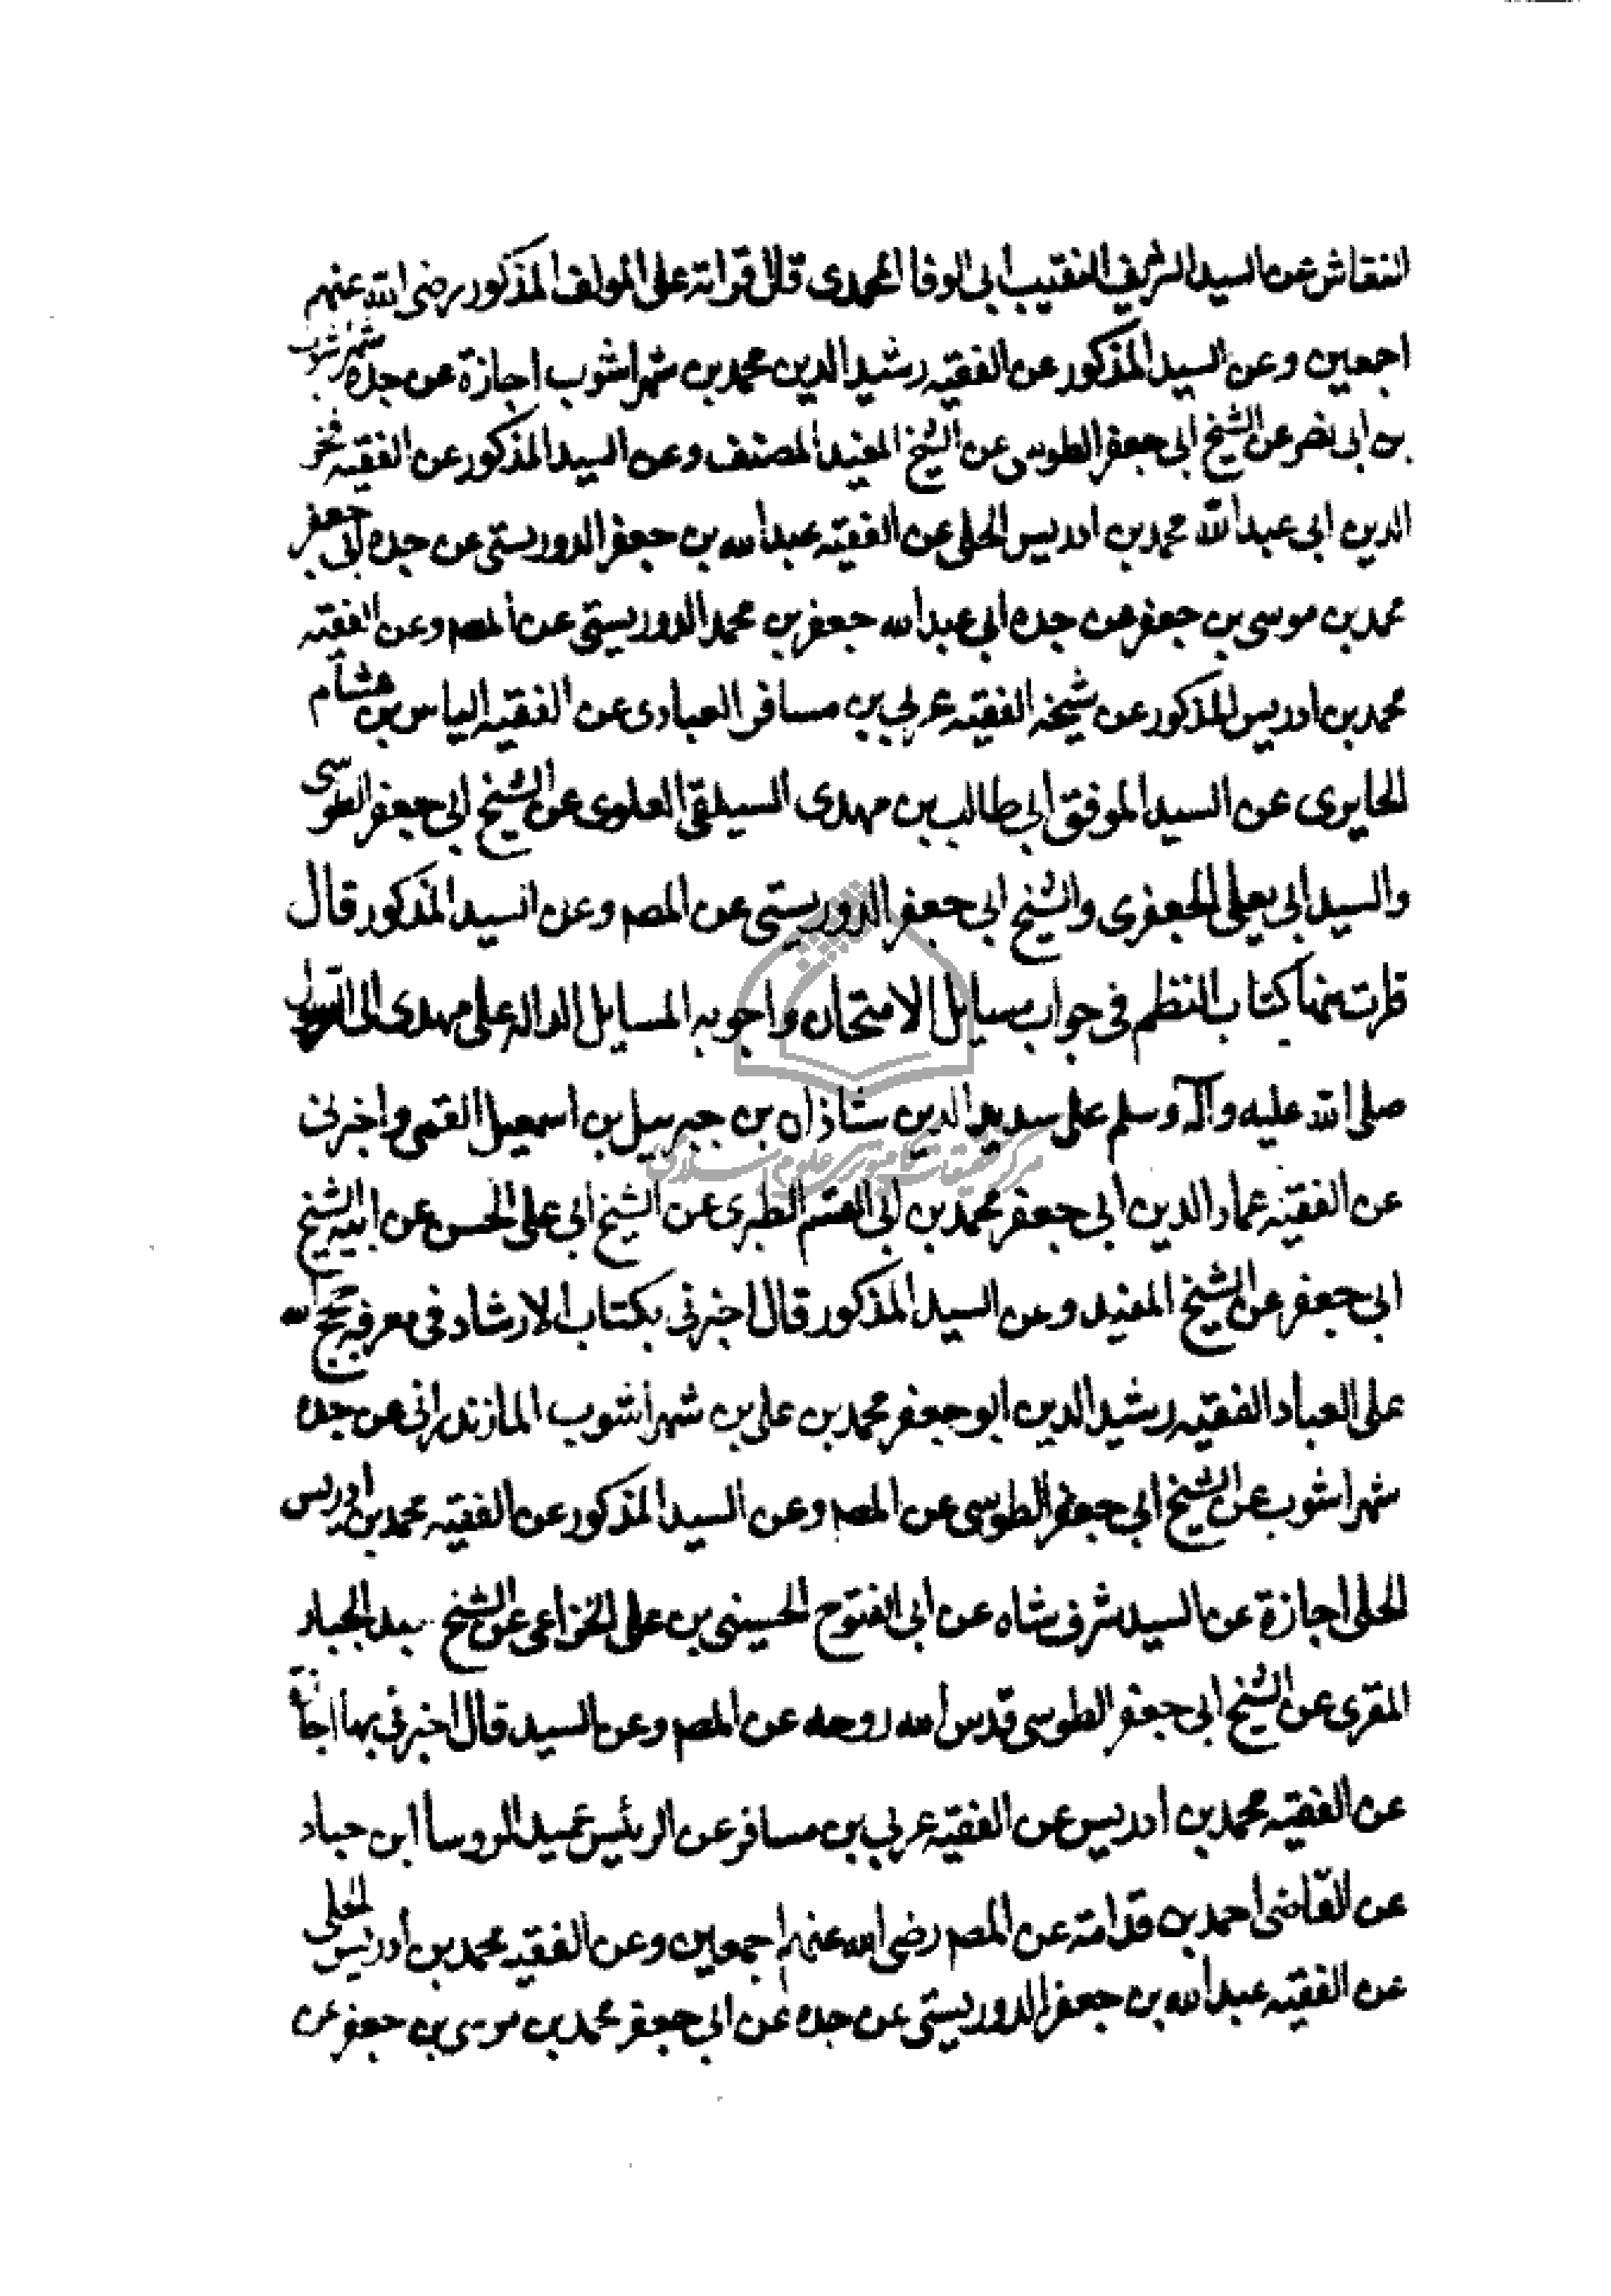 النقاش عن السيد الشريف النقيب ابى الوفا المحمدى قال قراته على المولف المذكور رضى الله عنهم
اجمعين وعن السيد المذكور عن الفقيه رشيد الدين محمد بن شهراشوب اجازة عن جده شهراشوب
بن ابى نصر عن الشيخ ابى جعفر الطوسى عن الشيخ المفيد المصنف وعن السيد المذكور عن الفقيه فخر
الدين ابى عبد الله محمد بن ادريس الحلى عن الفقيه عبد الله بن جعفر الدوريستى عن جده ابى جعفر
محمد بن موسى بن جعفر عن جده ابى عبد الله جعفر بن محمد الدوريستى عن المصم وعن الفقيه
محمد بن ادريس المذكور عن شيخه الفقيه عربى بن مسافر العبادى عن الفقيه الياس بن هشام
الحايرى عن السيد الموفق ابى طالب بن مهدى السيلقى العلوى عن الشيخ ابى جعفر الطوسى
والسيد ابى يعلى الجعفرى والشيخ ابى جعفر الدوريستى عن المصم وعن السيد المذكور قال
قرات منها كتاب النظم فى جواب مسايل الامتحان واجوبه المسايل الداله على مهدى ال الرسول
صلى الله عليه وآله وسلم على سديد الدين شاذان بن جبرييل بن اسمعيل القمى واخبرنى
عن الفقيه عماد الدين ابى جعفر محمد بن ابى القسم الطبرى عن الشيخ ابى على الحسن عن ابيه الشيخ
ابى جعفر عن الشيخ المفيد وعن السيد المذكور قال اخبرنى بكتاب الارشاد فى معرفه حجج الله
على العباد الفقيه رشيد الدين ابو جعفر محمد بن على بن شهرأشوب المازندرانى عن جده
شهراشوب عن الشيخ ابى جعفر الطوسى عن المصم وعن السيد المذكور عن الفقيه محمد بن ادريس
الحلى اجازة عن السيد شرفشاه عن ابى الفتوح الحسينى بن على الخزاعى عن الشيخ عبد الجبار
المقرى عن الشيخ ابى جعفر الطوسى قدس الله روحه عن المصم وعن السيد قال اخبرنى بها اجازة
عن الفقيه محمد بن ادريس عن الفقيه عربى بن مسافر عن الرئيس عميد الروسا ابن حباد
عن القاضى احمد بن قدامة عن المصم رضى الله عنهم اجمعين وعن الفقيه محمد بن ادريس الحلى
عن الفقيه عبد الله بن جعفر الدوريستى عن جده عن ابى جعفر محمد بن موسى بن جعفر عن
مركز تحقيقات كامپيوترى علوم اسلامى